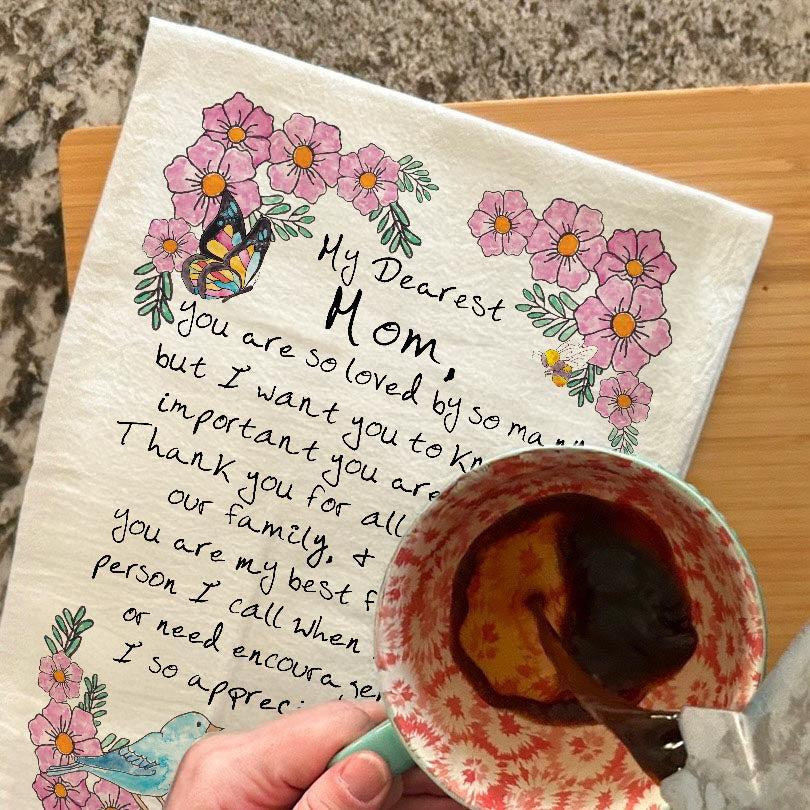 My Dearest
Mom,
you are so loved by so many
but I want you to
important you are
Thank you for all
our family, +
you are my best
person I call when
or need
I so